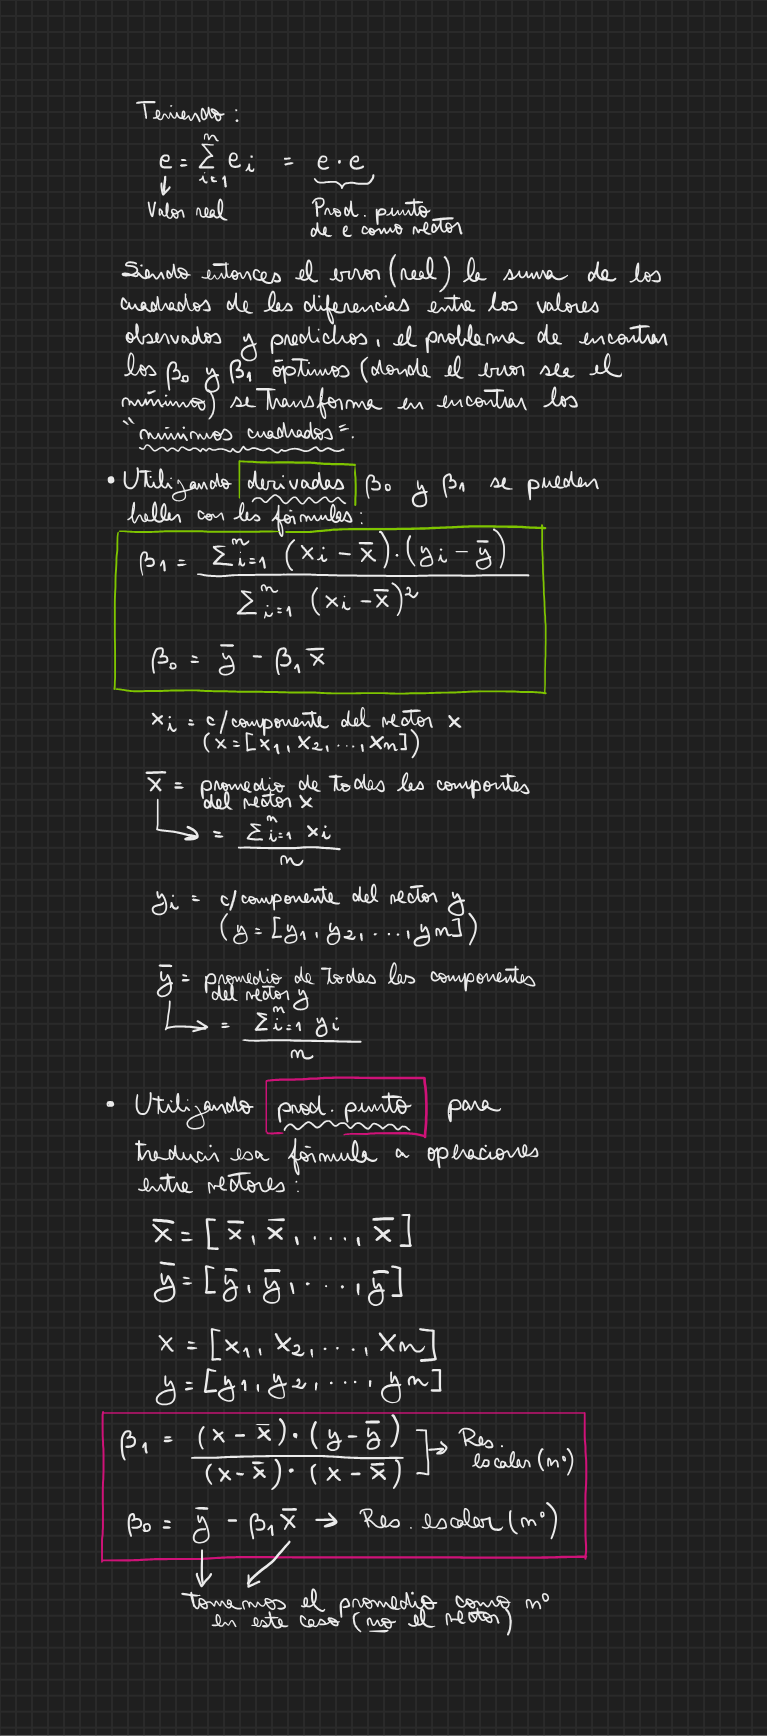 Teniendo:
e = ∑ᵢ₌₁ⁿ eᵢ = e · e
Valor real
Prod. punto
de e como vector
Siendo entonces el error (real) la suma de los
cuadrados de las diferencias entre los valores
observados y predichos, el problema de encontrar
los β₀ y β₁ óptimos (donde el error sea el
mínimo) se transforma en encontrar los
"mínimos cuadrados".
• Utilizando derivadas β₀ y β₁ se pueden
hallar con las fórmulas:
β₁ = ∑ᵢ₌₁ⁿ (xᵢ - x̄)·(yᵢ - ȳ) / ∑ᵢ₌₁ⁿ (xᵢ - x̄)²
β₀ = ȳ - β₁ x̄
xᵢ = c/componente del vector x
(x = [x₁, x₂, ..., xn])
x̄ = promedio de todas las compontes
del vector x
→ = ∑ᵢ₌₁ⁿ xᵢ / n
yᵢ = c/componente del vector y
(y = [y₁, y₂, ..., yn])
ȳ = promedio de todas las componentes
del vector y
→ = ∑ᵢ₌₁ⁿ yᵢ / n
• Utilizando prod. punto para
traducir esa fórmula a operaciones
entre vectores:
x̄ = [x̄, x̄, ...., x̄]
ȳ = [ȳ, ȳ, ..., ȳ]
x = [x₁, x₂, ..., xn]
y = [y₁, y₂, ..., yn]
β₁ = (x - x̄)·(y - ȳ) / (x - x̄)·(x - x̄) → Res.
escalar (nº)
β₀ = ȳ - β₁ x̄ → Res. escalar (nº)
tomamos el promedio como nº
en este caso (no el vector)